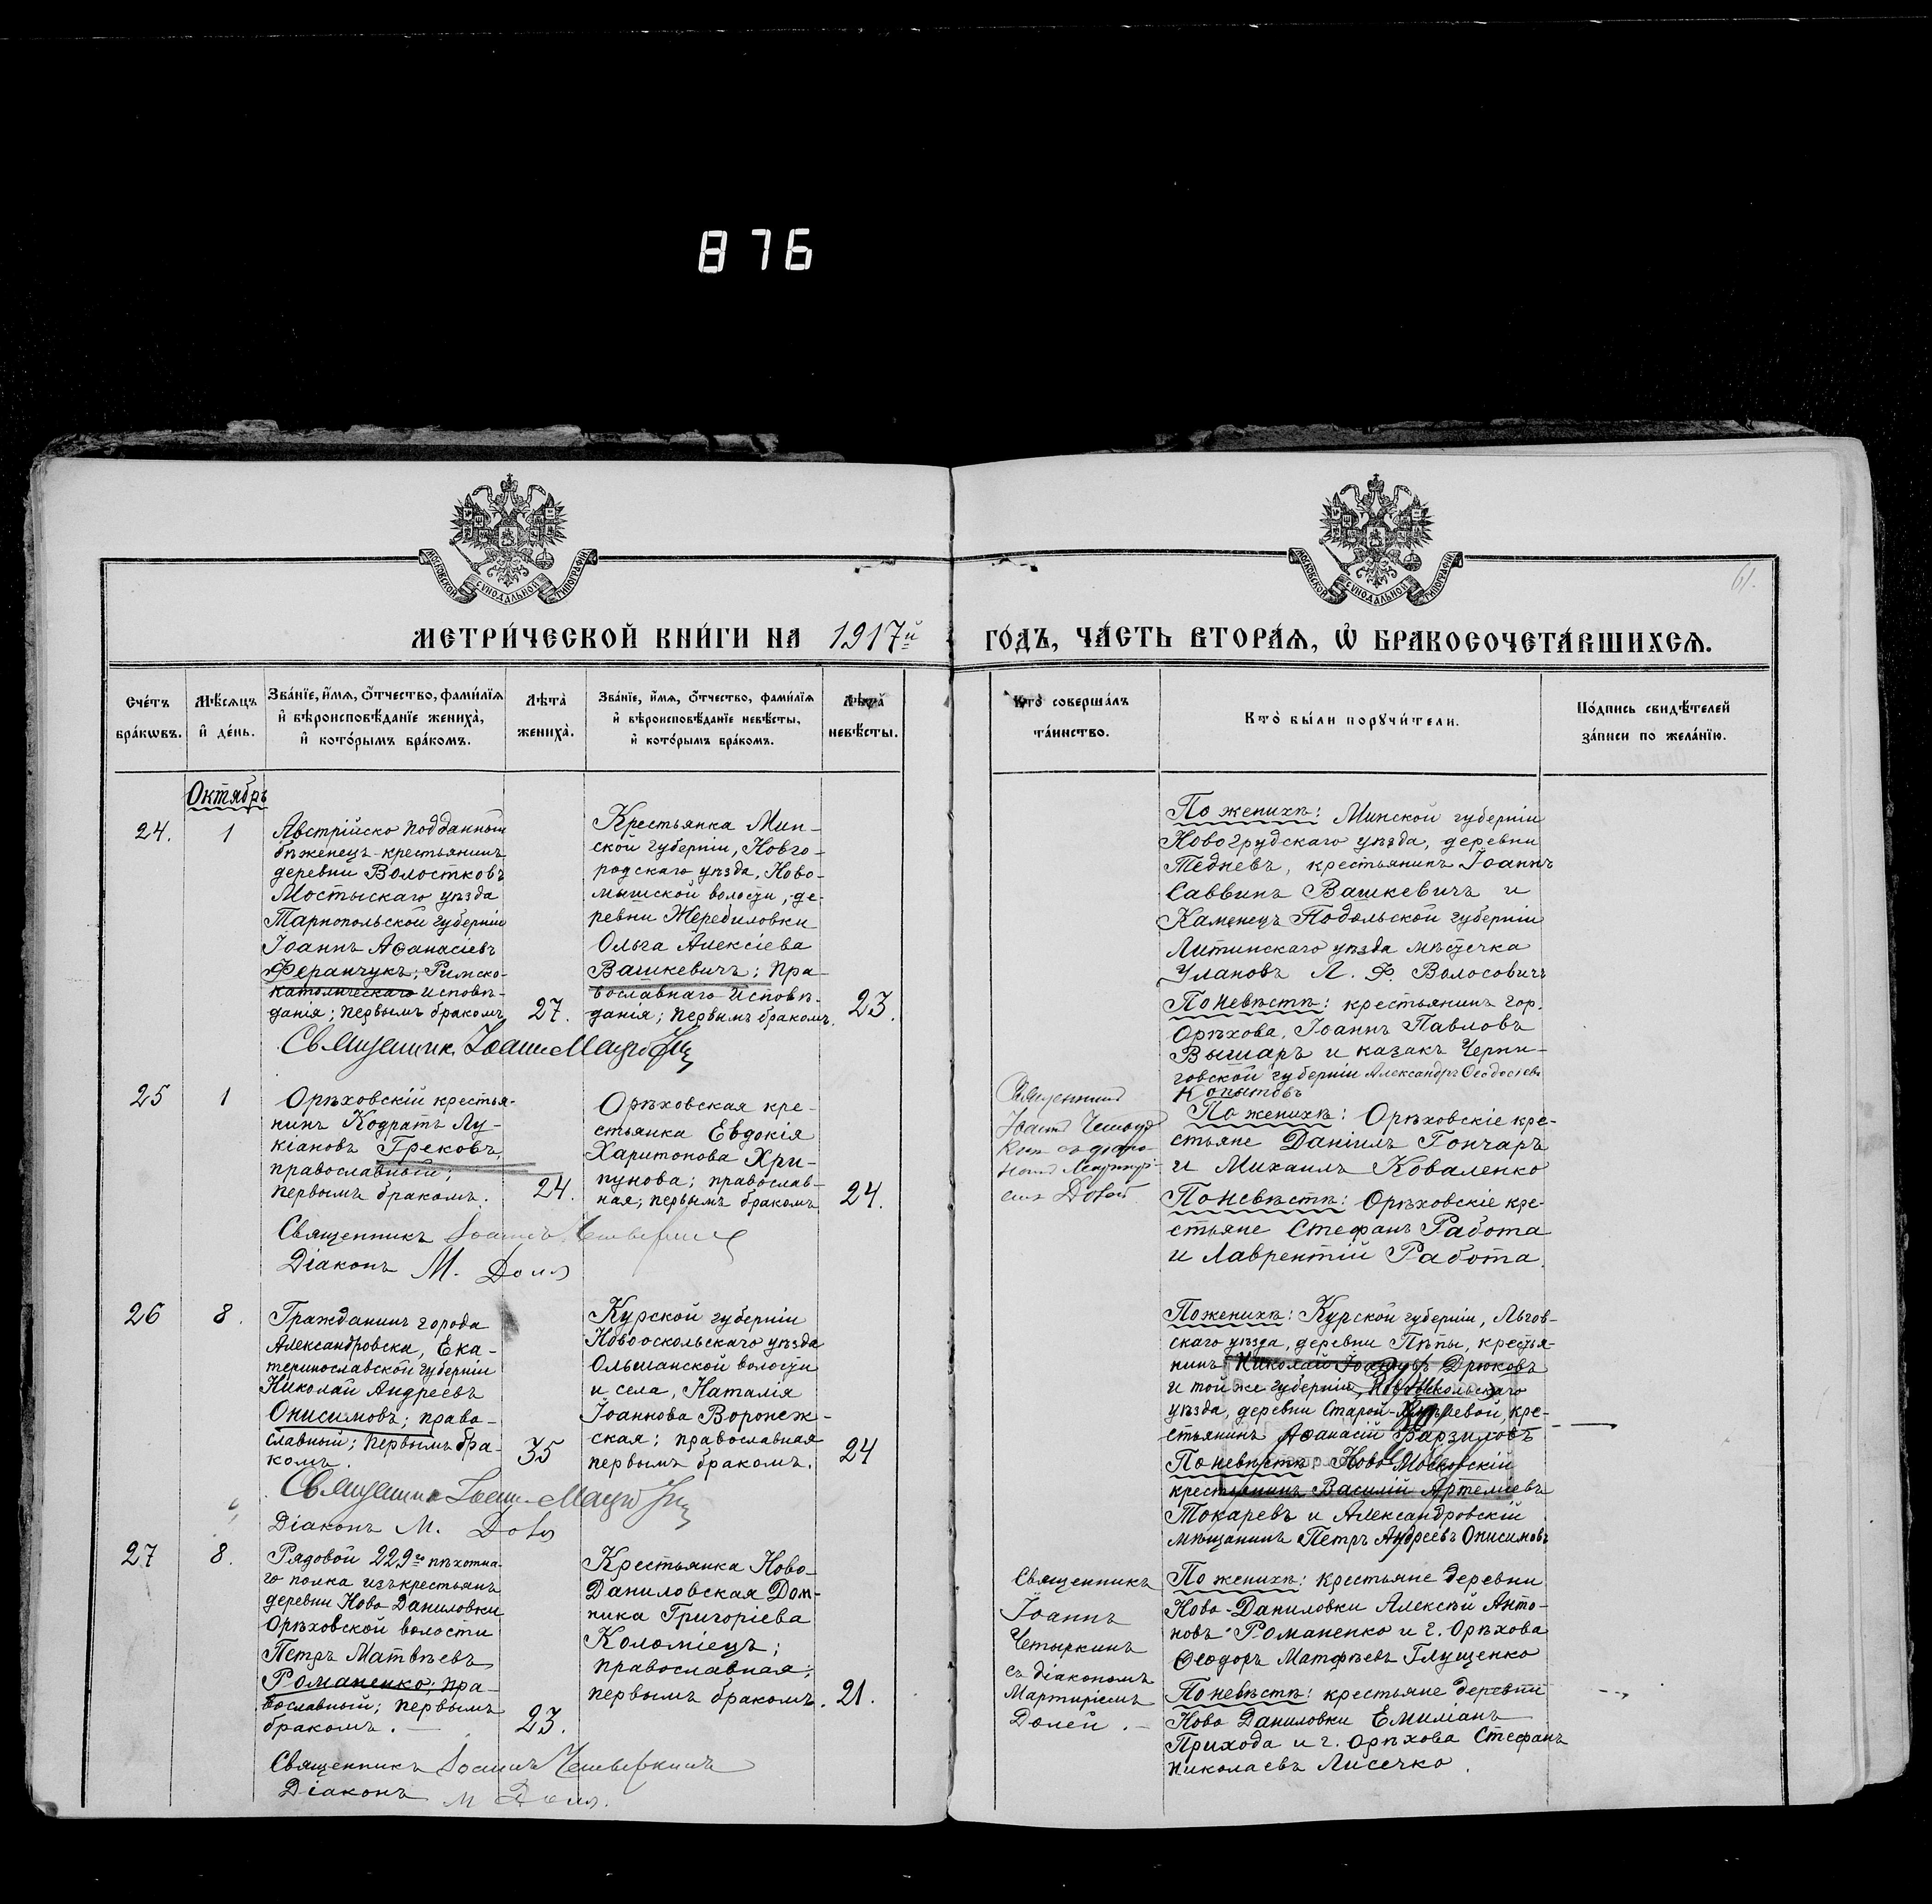 876
МОСКОВСКОЙ СѴНОДАЛЬНОЙ ТИПОГРАФІИ
МОСКОВСКОЙ СѴНОДАЛЬНОЙ ТИПОГРАФІИ
61.
МЕТРИ́ЧЕСКОЙ КНИ́ГИ НА 1917й ГО́ДЪ, ЧА́СТЬ ВТОРА́Ѧ, Ѡ҆ БРАКОСОЧЕТА́ВШИХСѦ.
Сче́тъ
бра́кѡвъ.
Мѣ́сѧцъ
и҆ де́нь.
Зва́нїе, и҆́мѧ, ѻ҆́тчество, фами́лїѧ
и҆ вѣроисповѣ́данїе жениха̀,
и҆ кото́рымъ бра́комъ.
Лѣ́та
жениха̀.
Зва́нїе, и҆́мѧ, ѻ҆́тчество, фами́лїѧ
и҆ вѣроисповѣ́данїе невѣ́сты,
и҆ кото́рымъ бра́комъ.
Лѣ́та
невѣ́сты.
Кто̀ соверша́лъ
та́инство.
Кто̀ бы́ли порꙋчи́тели.
По́дпись свидѣ́телей
за́писи по жела́нїю.
Октябрь
24.
1
Австрійско подданный
бѣженецъ-крестьянинъ
деревни Волостковъ
Мостыскаго уѣзда
Тарнопольской губерніи
Іоаннъ Аѳанасіевъ
Феранчукъ; Римско-
католическаго исповѣ-
данія; первымъ бракомъ
27.
Крестьянка Мин-
ской губерніи, Новго-
родскаго уѣзда, Ново-
мышской волости, де-
ревни Жеребиловки
Ольга Алексіева
Вашкевичъ; пра-
вославнаго исповѣ-
данія; первымъ бракомъ.
23.
Священник Іоанн
По женихѣ: Минской губерніи
Новогрудскаго уѣзда, деревни
Тедневъ, крестьянинъ Іоаннъ
Саввинъ Вашкевичъ и
Каменецъ Подольской губерніи
Литинскаго уѣзда мѣстечка
Улановъ Л. Ф. Волосовичъ
По невѣстѣ: крестьянинъ гор.
Орѣхова, Іоаннъ Павловъ
Вышаръ и казакъ Черни-
говской губерніи Александръ Ѳеодосіевъ
Копытовъ
25
1
Орѣховскій крестья-
нинъ Кодратъ Лу-
кіановъ Грековъ,
православный;
первымъ бракомъ.
24.
Орѣховская кре-
стьянка Евдокія
Харитонова Хри-
пунова; православ-
ная; первымъ бракомъ
24.
Священникъ Іоаннъ Четыркинъ
Діаконъ М. Доля
Священникъ
По женихѣ: Орѣховскіе кре-
стьяне Даніилъ Гончаръ
и Михаилъ Коваленко
По невѣстѣ: Орѣховскіе кре-
стьяне Стефанъ Работа
и Лаврентій Работа.
26
8.
Гражданинъ города
Александровска, Ека-
теринославской губерніи
Николай Андреевъ
Онисимовъ; право-
славный; первымъ бра-
комъ.
35
Курской губерніи
Новооскольскаго уѣзда
Ольшанской волости
и села, Наталія
Іоаннова Воронеж-
ская; православная
первымъ бракомъ.
24
Священник Іоанн
Діаконъ М. Доля
По женихѣ: Курской губерніи, Льгов-
скаго уѣзда, деревни Пѣны, крестья-
нинъ Николай Дрюковъ
и той же губерніи, Новооскольскаго
уѣзда, деревни Старой- кре-
стьянинъ Аѳанасій Барзиловъ
По невѣстѣ: Ново Московскій
крестьянинъ Василій Артеміевъ
Токаревъ и Александровскій
мѣщанинъ Петръ Андреевъ Онисимовъ
27
8.
Рядовой 229го пѣхотна-
го полка изъ крестьянъ
деревни Ново Даниловки
Орѣховской волости
Петръ Матвѣевъ
Романенко; пра-
вославный; первымъ
бракомъ.
23.
Крестьянка Ново-
Даниловская Дом-
ника Григоріева
Коломіецъ;
православная;
первымъ бракомъ.
21.
Священникъ Іоаннъ Четыркинъ
Діаконъ М Доля.
Священникъ
Іоаннъ
Четыркинъ
съ діакономъ
Мартиріемъ
Долей.
По женихѣ: крестьяне деревни
Ново-Даниловки Алексѣй Анто-
новъ Романенко и г. Орѣхова
Ѳеодоръ Матфѣевъ Глущенко
По невѣстѣ: крестьяне деревни
Ново Даниловки Емиліанъ
Прихода и г. Орѣхова Стефанъ
Николаевъ Лисечко.